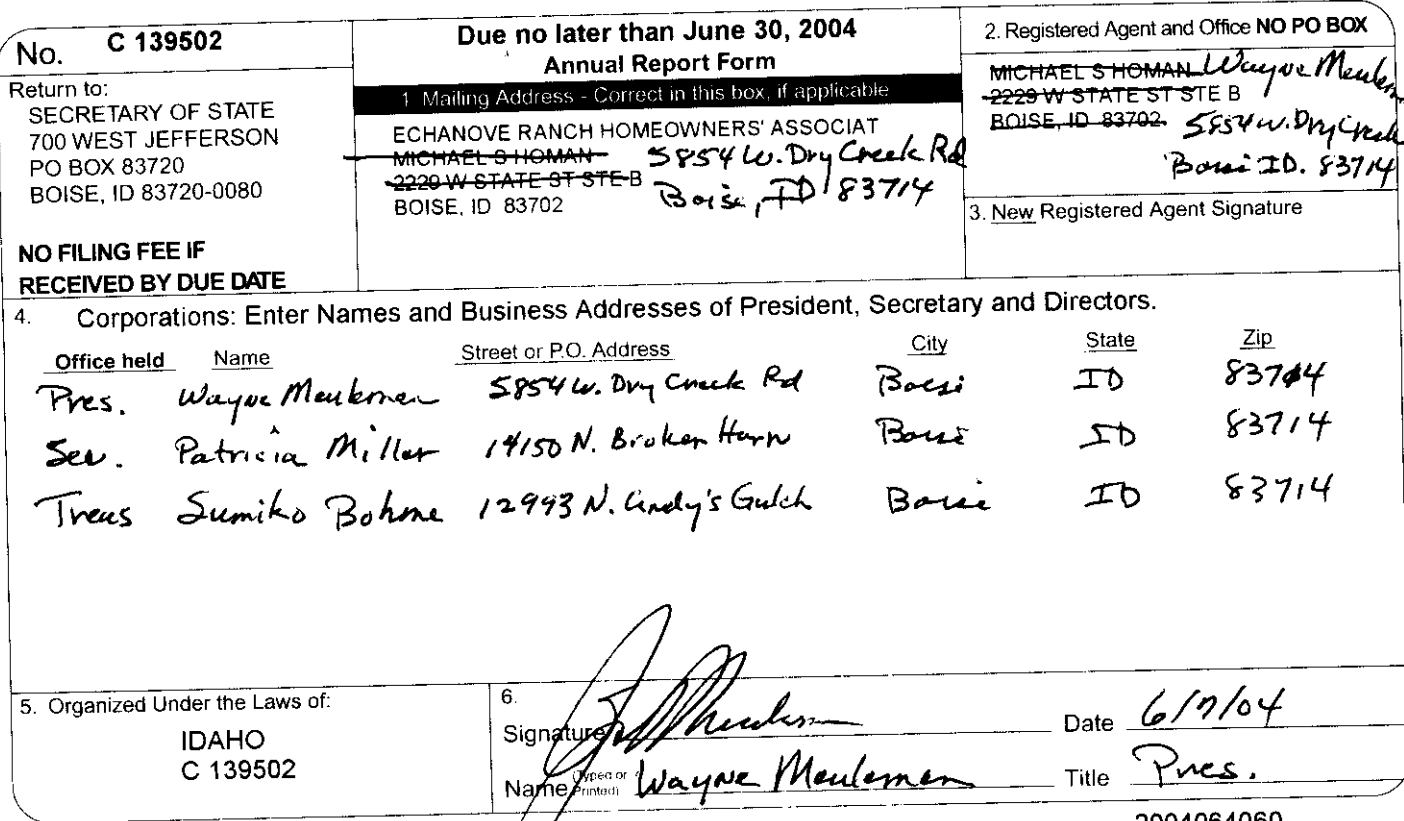 No. C 139502
Return to:
SECRETARY OF STATE
700 WEST JEFFERSON
PO BOX 83720
BOISE, ID 83720-0080
NO FILING FEE IF
RECEIVED BY DUE DATE
Due no later than June 30, 2004
Annual Report Form
1. Mailing Address - Correct in this box, if applicable
ECHANOVE RANCH HOMEOWNERS' ASSOCIAT
MICHAEL S HOMAN 5854 W. Dry Creek Rd
2229 W STATE ST STE B Boise, ID 83714
BOISE, ID 83702
2. Registered Agent and Office NO PO BOX
MICHAEL S HOMAN Wayne Meulem
2229 W STATE ST STE B
BOISE, ID 83702 5854 W. Dry Creek
Boise ID. 83714
3. New Registered Agent Signature
4. Corporations: Enter Names and Business Addresses of President, Secretary and Directors.
Office held Name Street or P.O. Address City State Zip
Pres. Wayne Meuleman 5854 W. Dry Creek Rd Boise ID 83714
Sec. Patricia Miller 14150 N. Broken Horn Boise ID 83714
Treas Sumiko Bohme 12993 N. Cindy's Gulch Boise ID 83714
5. Organized Under the Laws of:
IDAHO
C 139502
6.
Signature Date 6/7/04
Name (Typed or Printed) Wayne Meuleman Title Pres.
2004064060